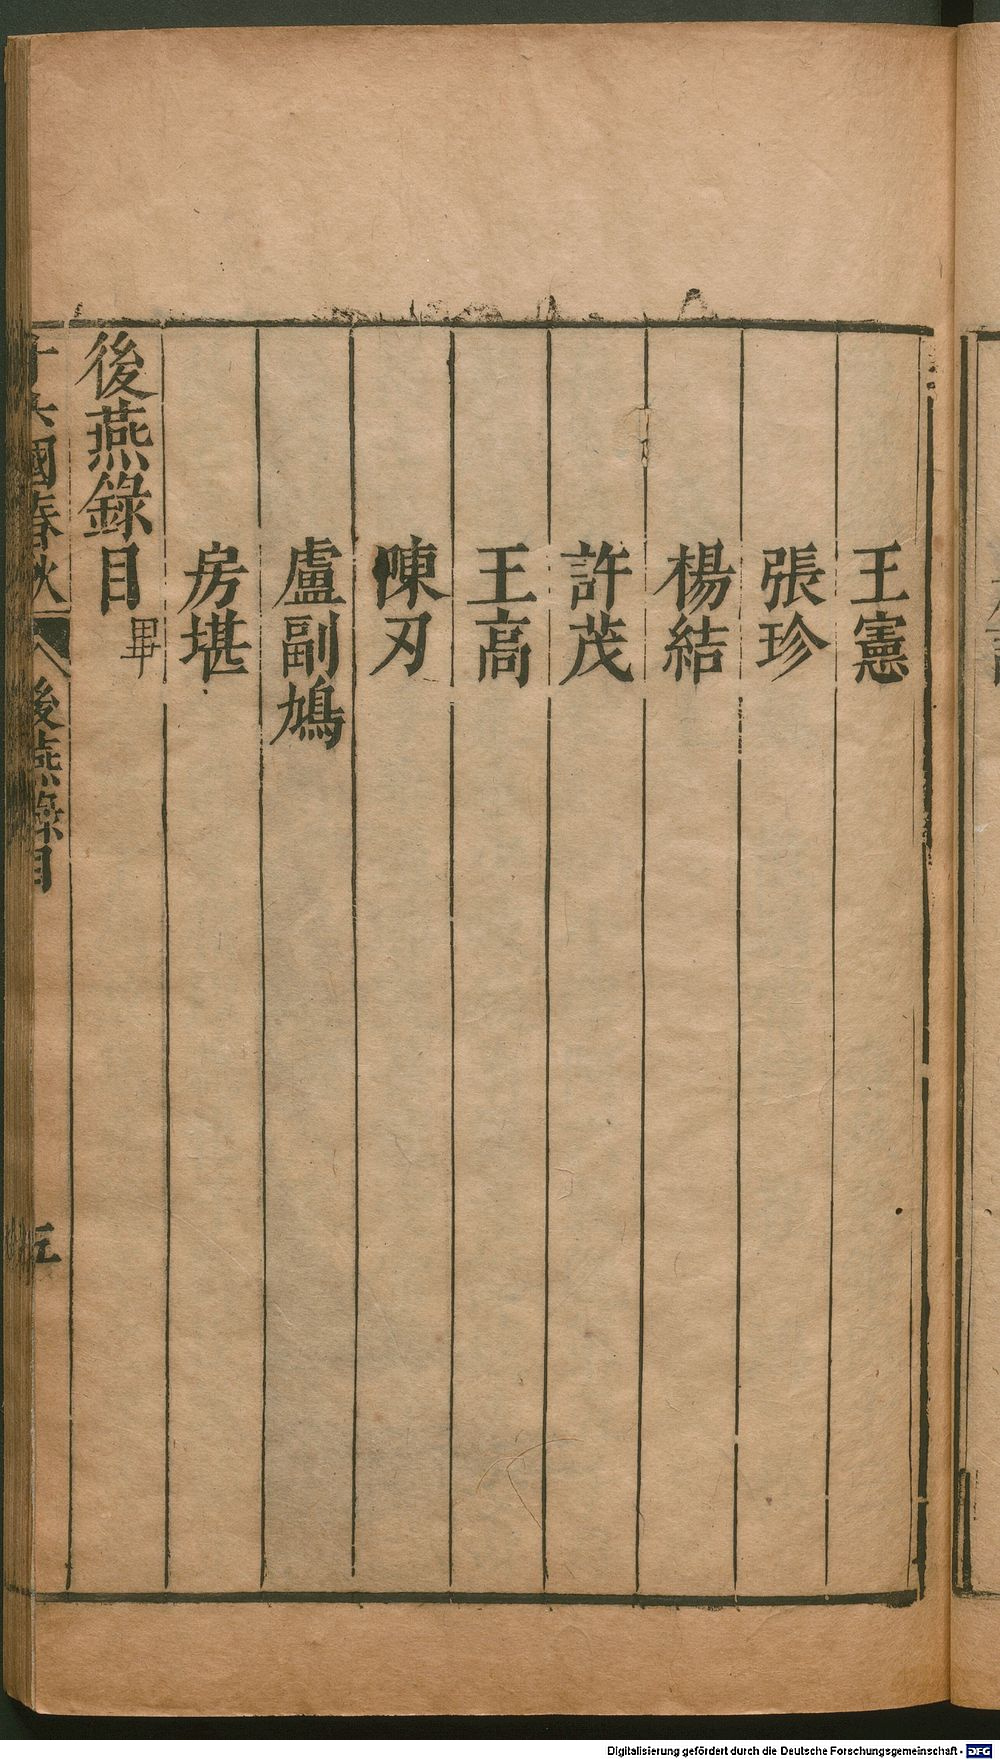 王憲
張珍
楊結
許茂
王高
陳刃
盧副鳩
房堪
後燕錄目畢
十六國春秋 後燕錄目 五
Digitalisierung gefördert durch die Deutsche Forschungsgemeinschaft - DFG